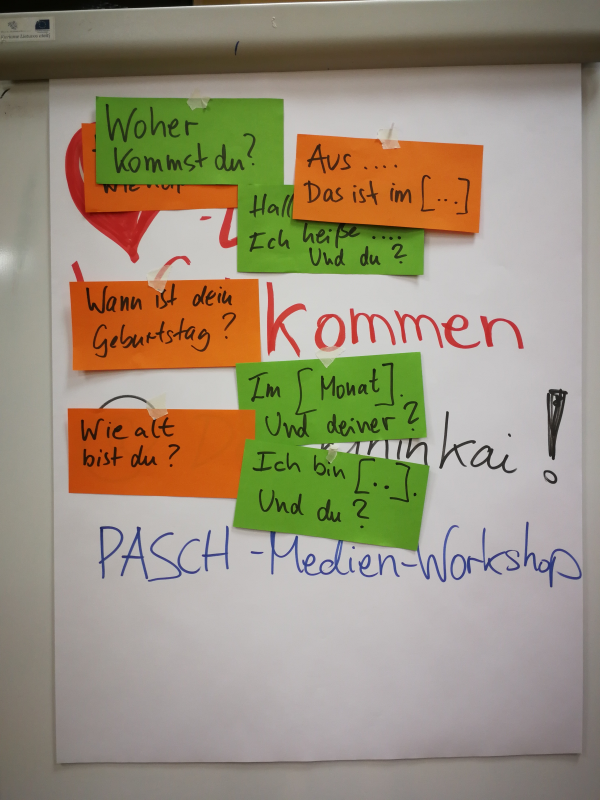 Woher
Kommst du?
Aus ....
Das ist im [...]
Ich heiße ....
Und du?
Wann ist dein
Geburtstag?
kommen
Im [Monat].
Und deiner?
Wie alt
bist du?
Ich bin [..].
Und du?
!
PASCH-Medien-Workshop